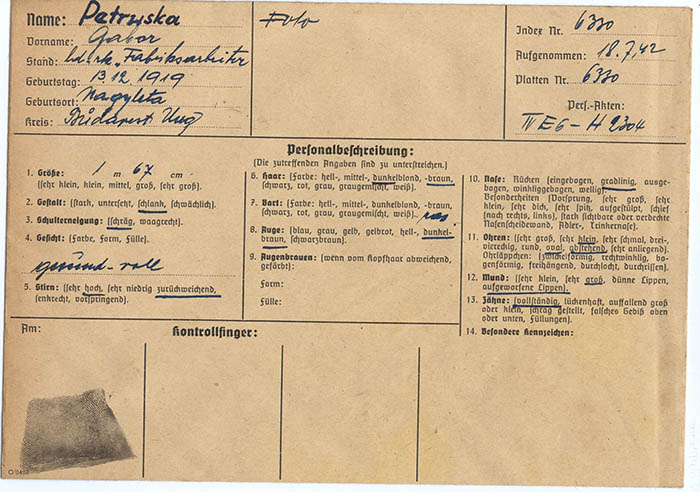 Name: Petruska
Vorname: Gabor
Stand: ldk. Fabriksarbeiter
Geburtstag: 13.12.1919
Geburtsort: Nagyléta
Kreis: Budapest Ung
Foto
Index Nr. 6330
Aufgenommen: 18.7.42
Platten Nr. 6330
Pers.-Akten:
IV E6 - H 2304
Personalbeschreibung:
(Die zutreffenden Angaben sind zu unterstreichen.)
1. Größe: 1 m 67 cm
(sehr klein, klein, mittel, groß, sehr groß).
2. Gestalt: (stark, untersetzt, schlank, schwächlich).
3. Schulterneigung: (schräg, waagrecht).
4. Gesicht: (Farbe, Form, Fülle).
gesund - voll
5. Stirn: (sehr hoch, sehr niedrig zurückweichend,
senkrecht, vorspringend).
6. Haar: (Farbe: hell-, mittel-, dunkelblond, -braun,
schwarz, rot, grau, graugemischt, weiß).
7. Bart: (Farbe: hell-, mittel-, dunkelblond, -braun,
schwarz, rot, grau, graugemischt, weiß).. ras
8. Auge: (blau, grau, gelb, gelbrot, hell-, dunkel-
braun, schwarzbraun).
9. Augenbrauen: (wenn vom Kopfhaar abweichend,
gefärbt):
Form:
Fülle:
10. Nase: Rücken (eingebogen, gradlinig, ausge-
bogen, winkliggebogen, wellig)
Besonderheiten (Vorsprung, sehr groß, sehr
klein, sehr dick, sehr spitz, aufgestülpt, schief
(nach rechts, links), stark sichtbare oder verdeckte
Nasenscheidewand, Adler-, Trinkernase).
11. Ohren: (sehr groß, sehr klein, sehr schmal, drei-,
viereckig, rund, oval, abstehend, sehr anliegend).
Ohrläppchen: (zwickelförmig, rechtwinklig, bo-
genförmig, freihängend, durchlocht, durchrissen).
12. Mund: (sehr klein, sehr groß, dünne Lippen,
aufgeworfene Lippen).
13. Zähne: (vollständig, lückenhaft, auffallend groß
oder klein, schräg gestellt, falsches Gebiß oben
oder unten, Füllungen).
14. Besondere Kennzeichen:
Am:
Kontrollfinger: